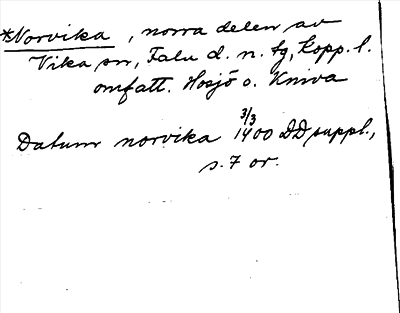 *Norvika, norra delen av
Vika sn, Falu d. n. tg, Kopp. l.
omfatt. Hosjö o. Kniva
3/3
Datum norvika 1400 DD suppl.,
s. 7 or.